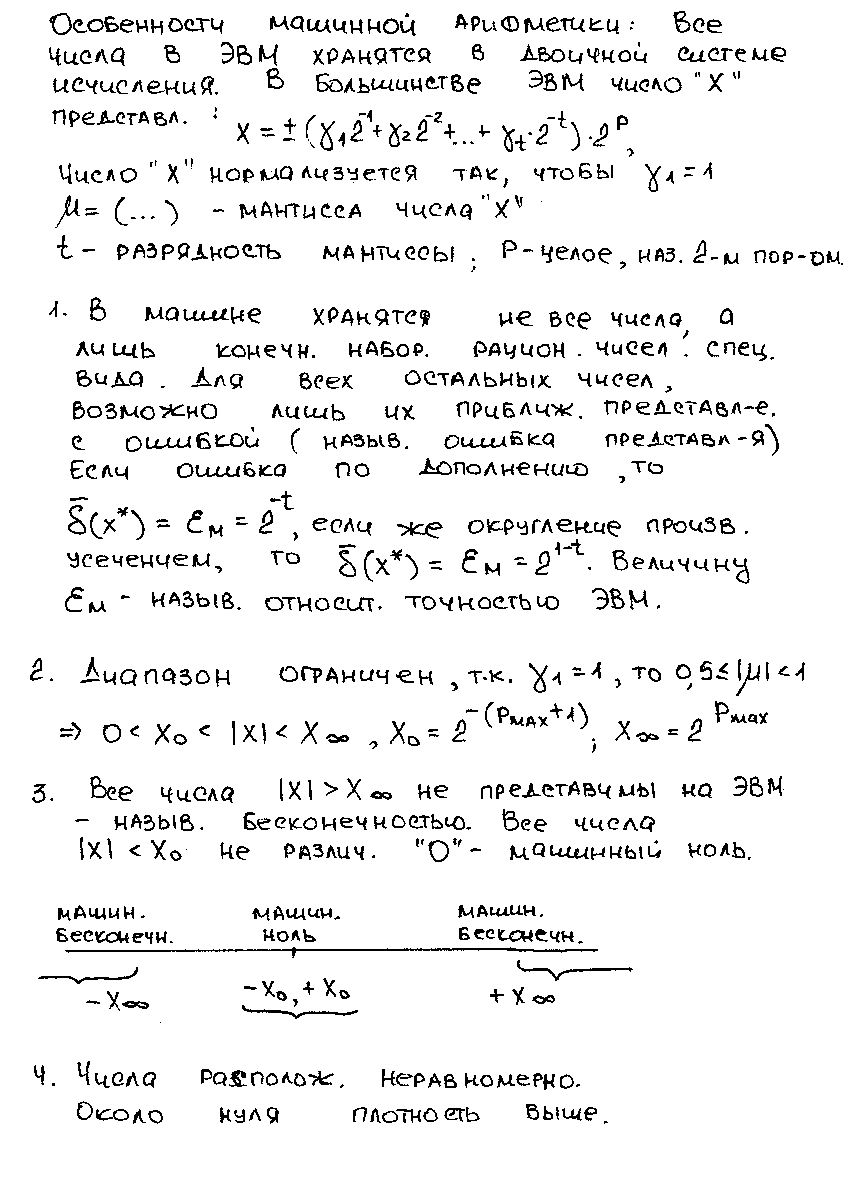 Особенности машинной арифметики: Все
числа в ЭВМ хранятся в двоичной системе
исчисления. В большинстве ЭВМ число "X"
представл. :
X = ± (γ₁2⁻¹+γ₂2⁻²+...+ γt·2⁻ᵗ)·2ᴾ,
Число "X" нормализуется так, чтобы γ₁=1
μ= (...) - мантисса числа "X"
t - разрядность мантиссы; P-целое, наз. 2-м пор-ом.
1. В машине хранятся не все числа, а
лишь конечн. набор. рацион. чисел. спец.
вида. Для всех остальных чисел,
возможно лишь их приближ. представл-е.
с ошибкой (назыв. ошибка представл-я)
Если ошибка по дополнению, то
δ̄(x*) = εм = 2⁻ᵗ, если же округление произв.
усечением, то δ̄(x*) = εм = 2¹⁻ᵗ. Величину
εм - назыв. относит. точностью ЭВМ.
2. Диапазон ограничен, т.к. γ₁=1, то 0,5≤|μ|<1
⇒ 0< X₀ < |X| < X∞, X₀ = 2^-(Pмах+1); X∞ = 2^Pмах
3. Все числа |X| > X∞ не представимы на ЭВМ
- назыв. бесконечностью. Все числа
|X| < X₀ не различ. "0" - машинный ноль.
машин. машин. машин.
бесконечн. ноль бесконечн.
-X∞ -X₀,+X₀ +X∞
4. Числа располож. неравномерно.
Около нуля плотность выше.